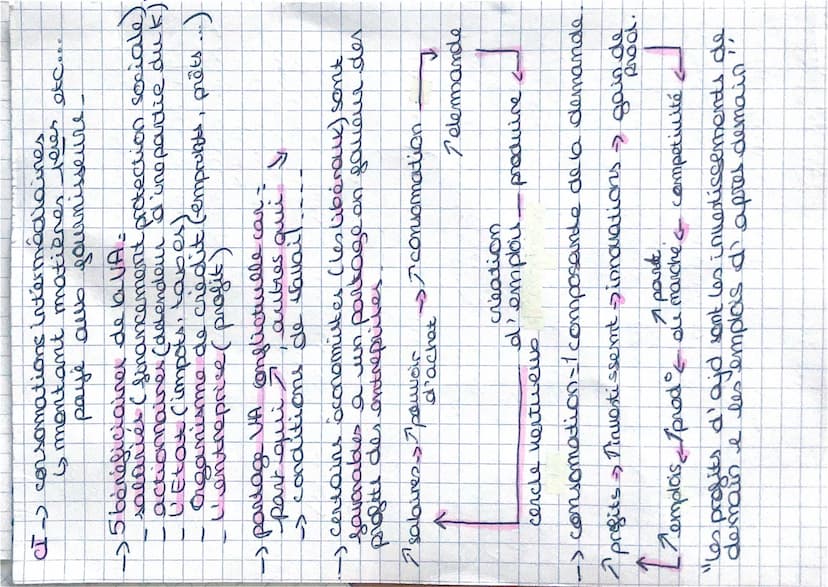 CI → consomations intérmédiaires
↳ montant matières 1ères etc...
paye aux fournisseurs.
→ 5 bénéficiaires de la VA =
- salariés (financement protection sociale)
- actionnaires (détendeur d'une partie du K)
- l'Etat (impots, taxes)
- Organisme de crédit (emprunts, prêts...)
- L'entreprise (profit)
→ partage VA conflictuelle car =
part qui ↗, autres qui ↘
→ conditions de travail ....
→ certains économistes (les libéraux) sont
favorables a un partage en faveur des
profits des entreprises.
↗ salaires → ↗ pouvoir d'achat → ↗ consomation
↗ demande
création
d'emploi — produire
cercle vertueux
→ consomation = 1 composante de la demande.
↗ profits → ↗ investissemt → innovations → gain de
prod.
↗ emplois ← ↗ prod° ← ↗ part de marché ← competivité
"Les profits d'ajd sont les investissements de
demain e les emplois d'apres demain"